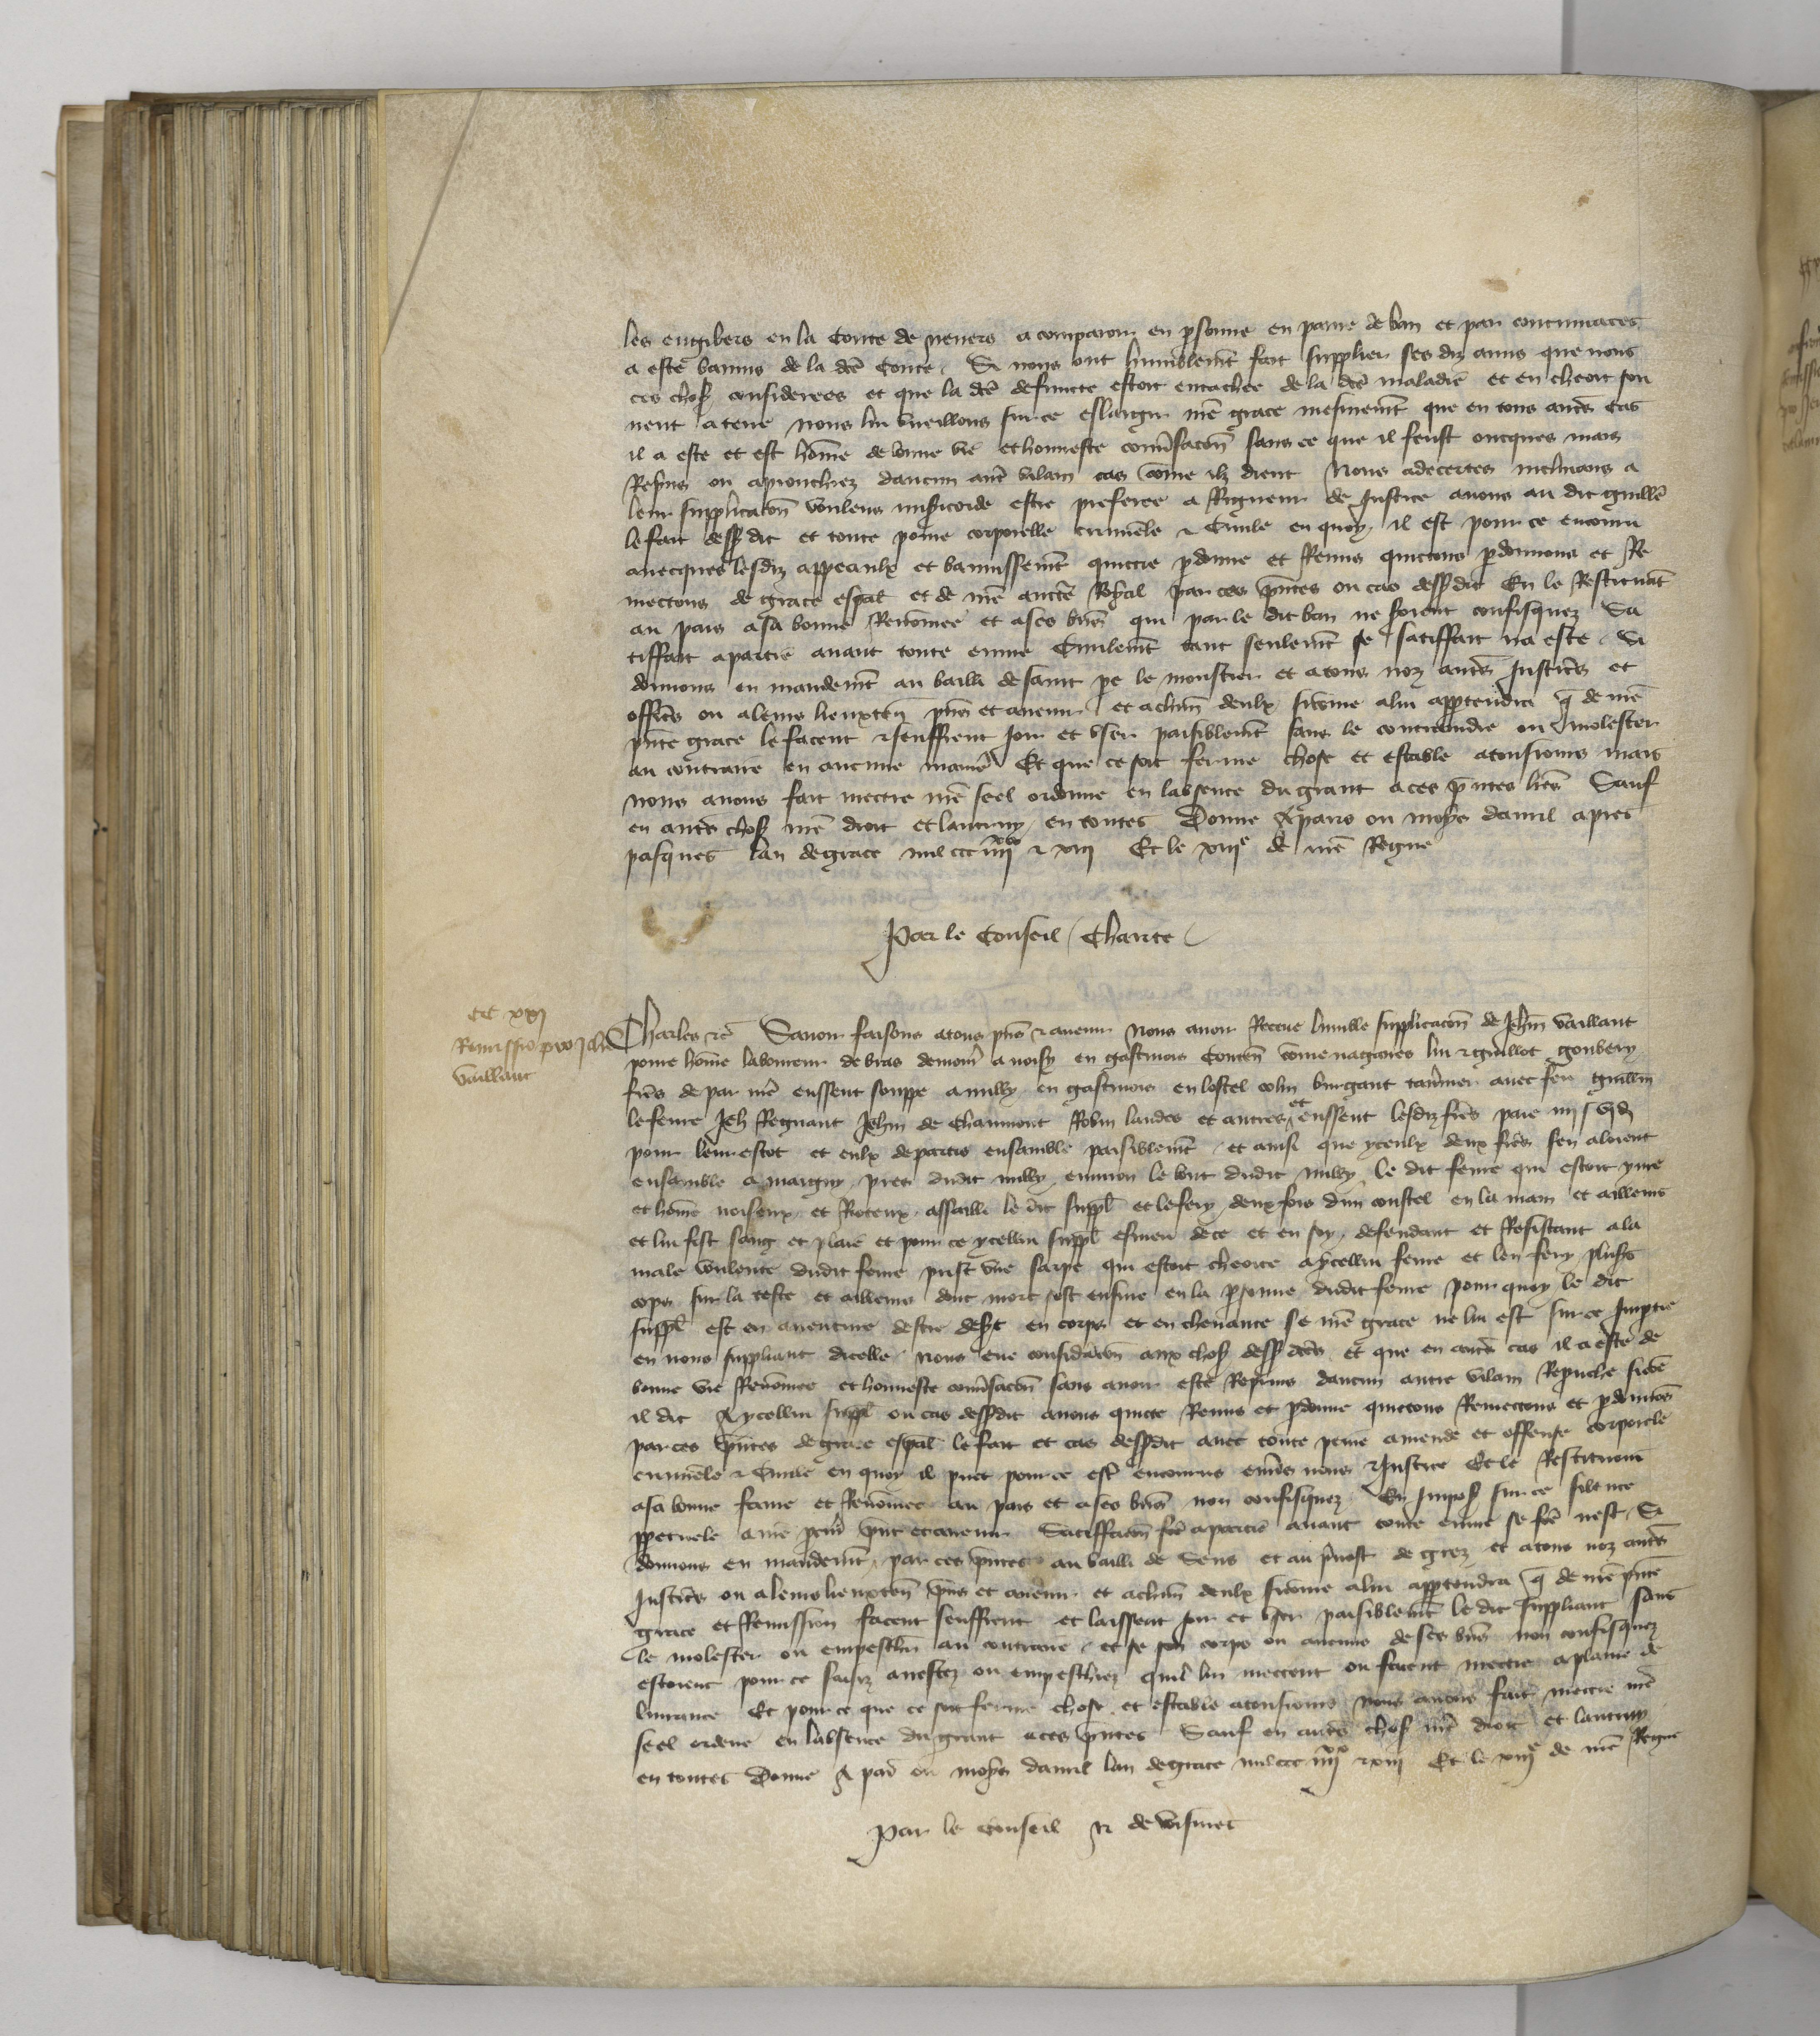 les engibers en la Conte de nevers a comparoir en psonne en paine de ban et par contumaces
a este bannis de la dce Conte. Si nous ont humblemt fait supplier ses diz amis que nous
ces chos considerees et que la dce defuncte estoit entachee de la dce maladie et en cheoit sou
vent a terre nous lui vueillons sur ce eslargir nre grace mesmemt que en tous autres cas
il a este et est home de bonne vie et honneste conversacon sans ce que il feust oncques mais
Repris ou aprouchiez daucun autre vilain cas come ilz dient Nous adecertes inclinans a
leur supplicacon voulens misericorde estre preferee a Rigueur de Justice avons au dit guille
le fait dess dit et toute poine corporelle criminele & Civile en quoy il est pour ce encouru
avecques lesdiz appeaulx et bannissemt quictie pdonne et Remis quictons pdonnons et Re
mectons de grace espal et de nre aucte Royal par ces pntes ou cas dess dit En le Restituant
au pais a sa bonne Renomee et a ses biens qui par le dit ban ne soient confisquez Sa
tiffait a partie avant toute euvre Civilemt tant seulemt se satiffait na este. Si
donnons en mandemt au bailli de saint pe le moustier et a tous noz autres Justiciers et
officiers ou a leurs lieuxten pns et avenir et a chun deulx sicome a lui apptendra q de nre
pnte grace le facent & seuffrent joir et user paisiblemt sans le contraindre ou molester
au contraire en aucune maniere Et que ce soit ferme chose et estable a tousjours mais
nous avons fait mectre nre seel ordonne en labsence du grant a ces pntes lres Sauf
en autres chos nre droit et lautruy en toutes Donne A paris ou moys davril apres
pasques lan de grace mil ccc iiiixx & xiii Et le xiiie de nre Regne
Par le Conseil / Charite
CC xxi
Remissio pro Johe
Vaillant
Charles &c Savoir faisons a tous pns & avenir Nous avoir Receue lumble supplicacon de Jehan Vaillant
povre home laboureur de bras demour a noisy en gastinois Conten come nagaires lui & guillot gonbery
freres de par mere eussent souppe a milly en gastinois en lostel colin burgaut tavernier avec feu guillin
lefevre Jeh Regnaut Jehan de Chaumont Robin landes et autres et eussent lesdiz freres paie iiii s vi d
pour leur escot et eulx departis ensamble paisiblemt et ainsi que yceulx deux freres sen aloient
ensamble a maigny pres dudit milly environ le bout dudit milly Le dit fevre qui estoit yvre
et home noiseux et Roteux assailli le dit suppl et le fery deux fois dun coustel en la main et ailleurs
et lui fist sang et plaie et pour ce ycellui suppl esmeu de ce et en soy defendant et Resistant a la
male voulente dudit fevre prist une sarpe qui estoit cheoite a ycellui fevre et len fery plus
cops sur la teste et ailleurs dont mort sest ensuie en la psonne dudit fevre pour quoy le dit
suppl est en aventure destre desert en corps et en chevance se nre grace ne lui est sur ce Impartie
en nous suppliant dicelle. Nous eue consideracon aux chos dess dces et que en autre cas il a este de
bonne vie Renomee et honneste conversacon sans avoir este Repris daucun autre vilain Reprouche sicome
il dit A ycellui suppl ou cas dessdit avons quicte Remis et pdonne quictons Remectons et pdonnons
par ces pntes de grace espal le fait et cas dessdit avec toute peine amende et offense corporele
criminele & Civile en quoy il puet pour ce est encourus envers nous & Justice Et le Restituons
a sa bonne fame et Renomee au pais et a ses biens non confisquez. En Impos sur ce silence
ppetuele a nre procur pnt et avenir Satiffacon fce a partie avant toute euvre se fce nest. Si
donnons en mandemt par ces pntes au bailli de Sens et au prevost de grez et a tous noz autres
Justiciers ou a leurs lieuxten pns et avenir et a chun deulx sicome a lui apptendra q de nre pnte
grace et Remission facent seuffrent et laissent joir et user paisiblemt le dit suppliant sans
le molester ou empescher au contraire et se son corps ou aucuns de ses biens non confisquez
estoient pour ce saisiz arrestez ou empeschiez quil lui mectent ou facent mectre a plaine de
livrance Et pour ce que ce soit ferme chose et estable a tousjours Nous avons fait mectre nre
seel ordene en labsence du grant a ces pntes Sauf en autres chos nre droit et lautruy
en toutes Donne A paris ou moys davril lan de grace mil ccc iiiixx & xiii Et le xiiie de nre Regne
Par le Conseil N de Voisines